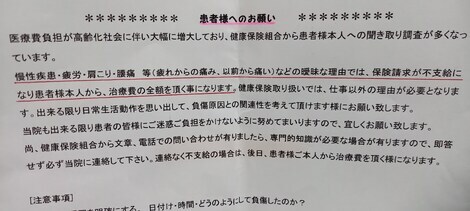 ********* 患者様へのお願い *********
医療費負担が高齢化社会に伴い大幅に増大しており、健康保険組合から患者様本人への聞き取り調査が多くなっ
ています。
慢性疾患・疲労・肩こり・腰痛 等(疲れからの痛み、以前から痛い)などの曖昧な理由では、保険請求が不支給に
なり患者様本人から、治療費の全額を頂く事になります。健康保険取り扱いでは、仕事以外の理由が必要となりま
す。出来る限り日常生活動作を思い出して、負傷原因との関連性を考えて頂けます様にお願い致します。
当院も出来る限り患者の皆様にご迷惑ご負担をかけないように努めてまいりますので、宜しくお願い致します。
尚、健康保険組合から文章、電話での問い合わせが有りましたら、専門的知識が必要な場合が有りますので、即答
せず必ず当院に連絡して下さい。連絡なく不支給の場合は、後日、患者様ご本人から治療費を頂く様になります。
[注意事項]
を明確にする。 日付け・時間・どのようにして負傷したのか？